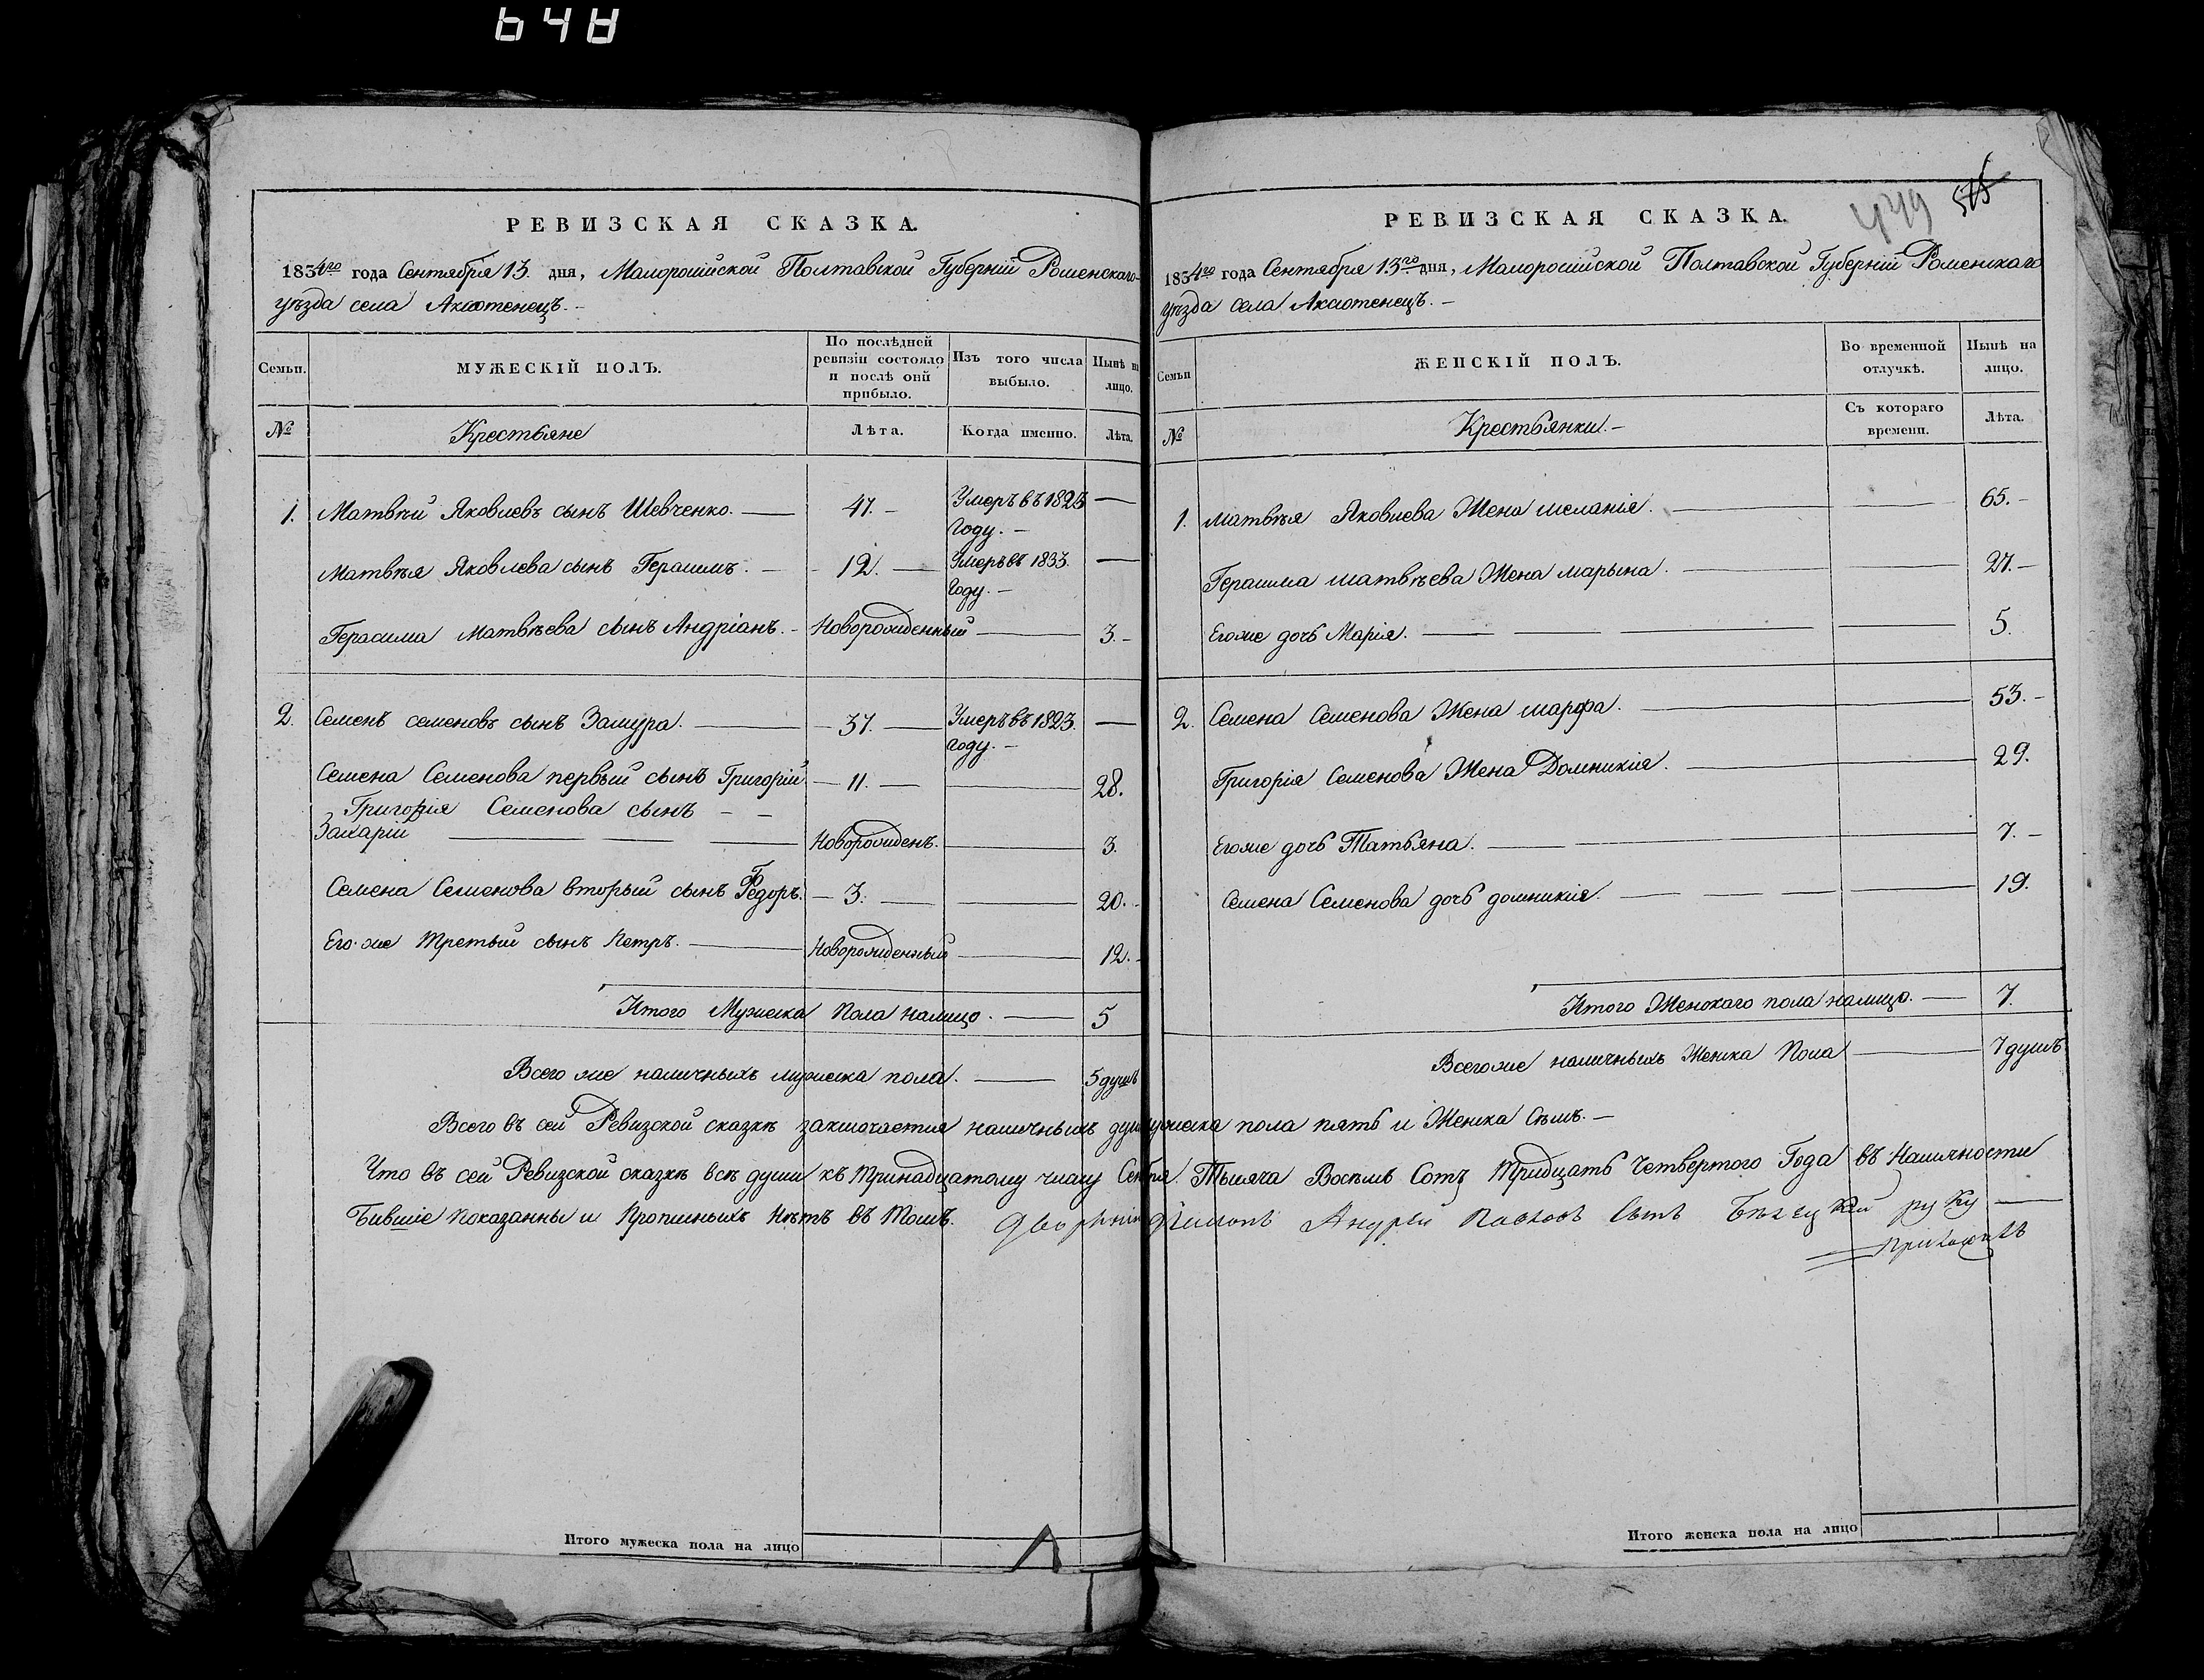 648
РЕВИЗСКАЯ СКАЗКА.
1834го года Сентября 13. дня, Малоросійской Полтавской Губерніи Роменскаго
уѣзда села Аксютенецъ. –
Семьи. МУЖЕСКІЙ ПОЛЪ. По послѣдней ревизіи состояло и послѣ оній прибыло. Изъ того числа выбыло. Нынѣ на лицо.
№ Крестьяне Лѣта. Когда именно. Лѣта.
1. Матвѣй Яковлевъ сынъ Шевченко. — 47. – Умеръ въ 1823 —
году. –
Матвѣя Яковлева сынъ Герасимъ. – 12. — Умеръ въ 1833. —
году. –
Герасима Матвѣева сынъ Андріанъ. – Новорожденный — 3. –
2. Семенъ семеновъ сынъ Замура. — 37. — Умеръ въ 1823. —
году. –
Семена Семенова первый сынъ Григорій — 11. — — 28.
Григорія Семенова сынъ – –
Захарій — — Новорожденъ. — 3.
Семена Семенова вторый сынъ Федоръ. — 3. — — 20. –
Его же Третьій сынъ Петръ. — Новорожденный — 12. –
Итого Мужеска Пола налицо. — 5
Всего же наличныхъ мужеска пола. — 5 душъ
РЕВИЗСКАЯ СКАЗКА.
449 515
1834го года Сентября 13го дня, Малоросійской Полтавской Губерніи Роменскаго
уѣзда села Аксютенецъ. –
Семьи ЖЕНСКІЙ ПОЛЪ. Во временной отлучкѣ. Нынѣ на лицо.
№ Крестьянки. – Съ котораго времени. Лѣта.
1. Матвѣя Яковлева Жена меланія. — — 65. –
Герасима матвѣева Жена марьина. — — 27. –
Егоже дочь Марія. — — — — 5.
2. Семена Семенова Жена марфа. — 53. –
Григорія Семенова Жена Домникія. — 29.
Егоже дочь Татьяна. — — 7. –
Семена Семенова дочь домникія. — — — — 19.
Итого Женскаго пола налицо. — 7.
Всегоже наличныхъ Женска Пола — 7 душъ
Всего въ сей Ревизской сказкѣ заключается наличныхъ душ мужеска пола пять и Женска Сѣмъ. –
Что въ сей Ревизской сказкѣ всѣ души къ Тринадцатому числу Сенбря. Тысяча Восѣмъ Сотъ Тридцать Четвертого Года въ Наличности
Бившіе Показанны и Прописныхъ Нѣтъ въ Томъ. Андрей Павловъ Сынъ руку —
приложилъ
Итого мужеска пола на лицо
Итого женска пола на лицо